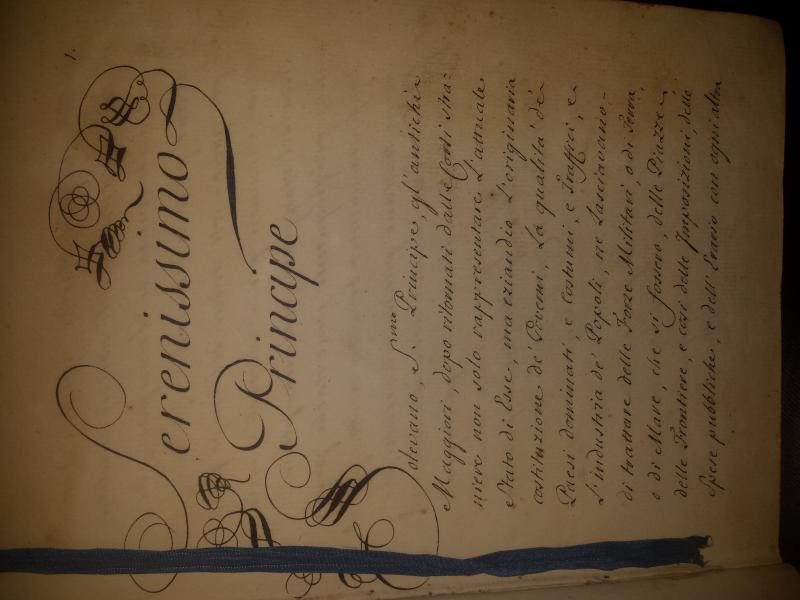 1.
Serenissimo
Principe
Solevano, S.mo Principe, gl'antichi
Maggiori, dopo ritornati dalle Corti stra:
niere non solo rappresentare l'attuale
Stato di Esse, ma eziandio l'originaria
costituzione de' Governi, La qualità de'
Paesi dominati, e costumi, e Traffici, e
L'industria de' Popoli, ne lasciavano-
di trattare delle Forze Militari, o di Terra,
o di Mare, che si fossero, delle Piazze,
delle Frontiere, e così delle Imposizioni, delle
Spese pubbliche, e dell'Erario con ogni altra